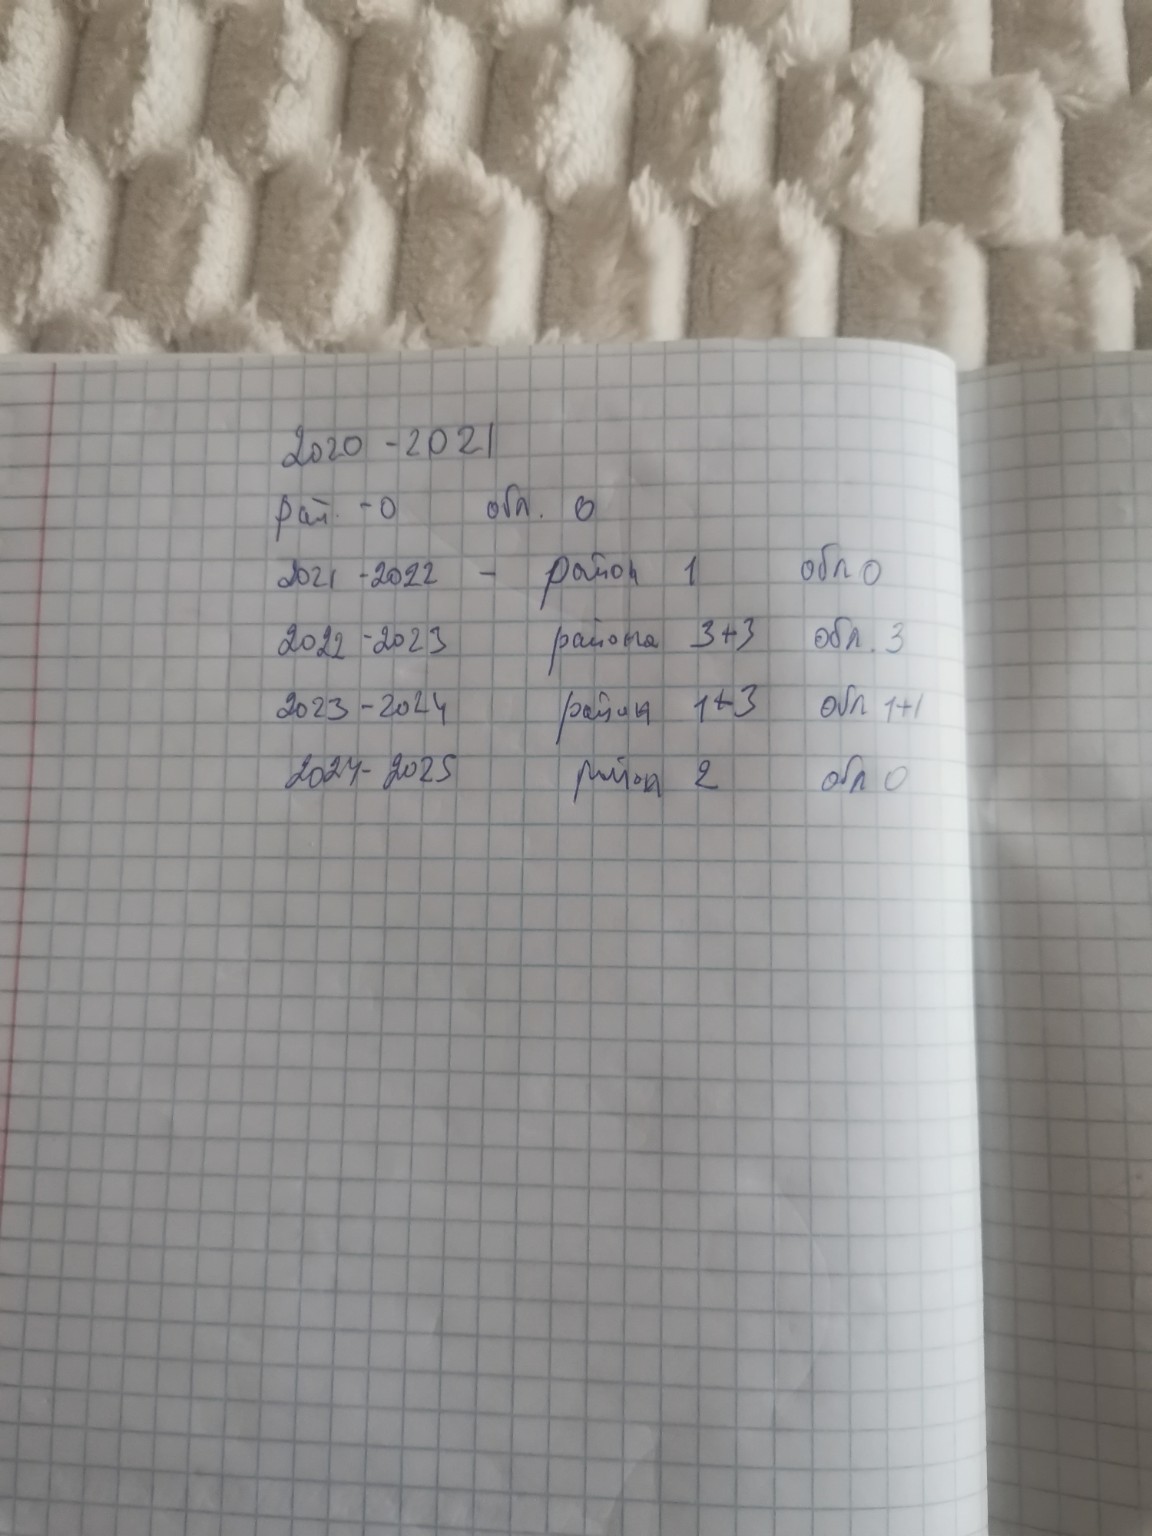 2020 - 2021
рай. - 0 обл. 0
2021 - 2022 - район 1 обл 0
2022 - 2023 района 3+3 обл. 3
2023 - 2024 район 1+3 обл 1+1
2024 - 2025 район 2 обл 0